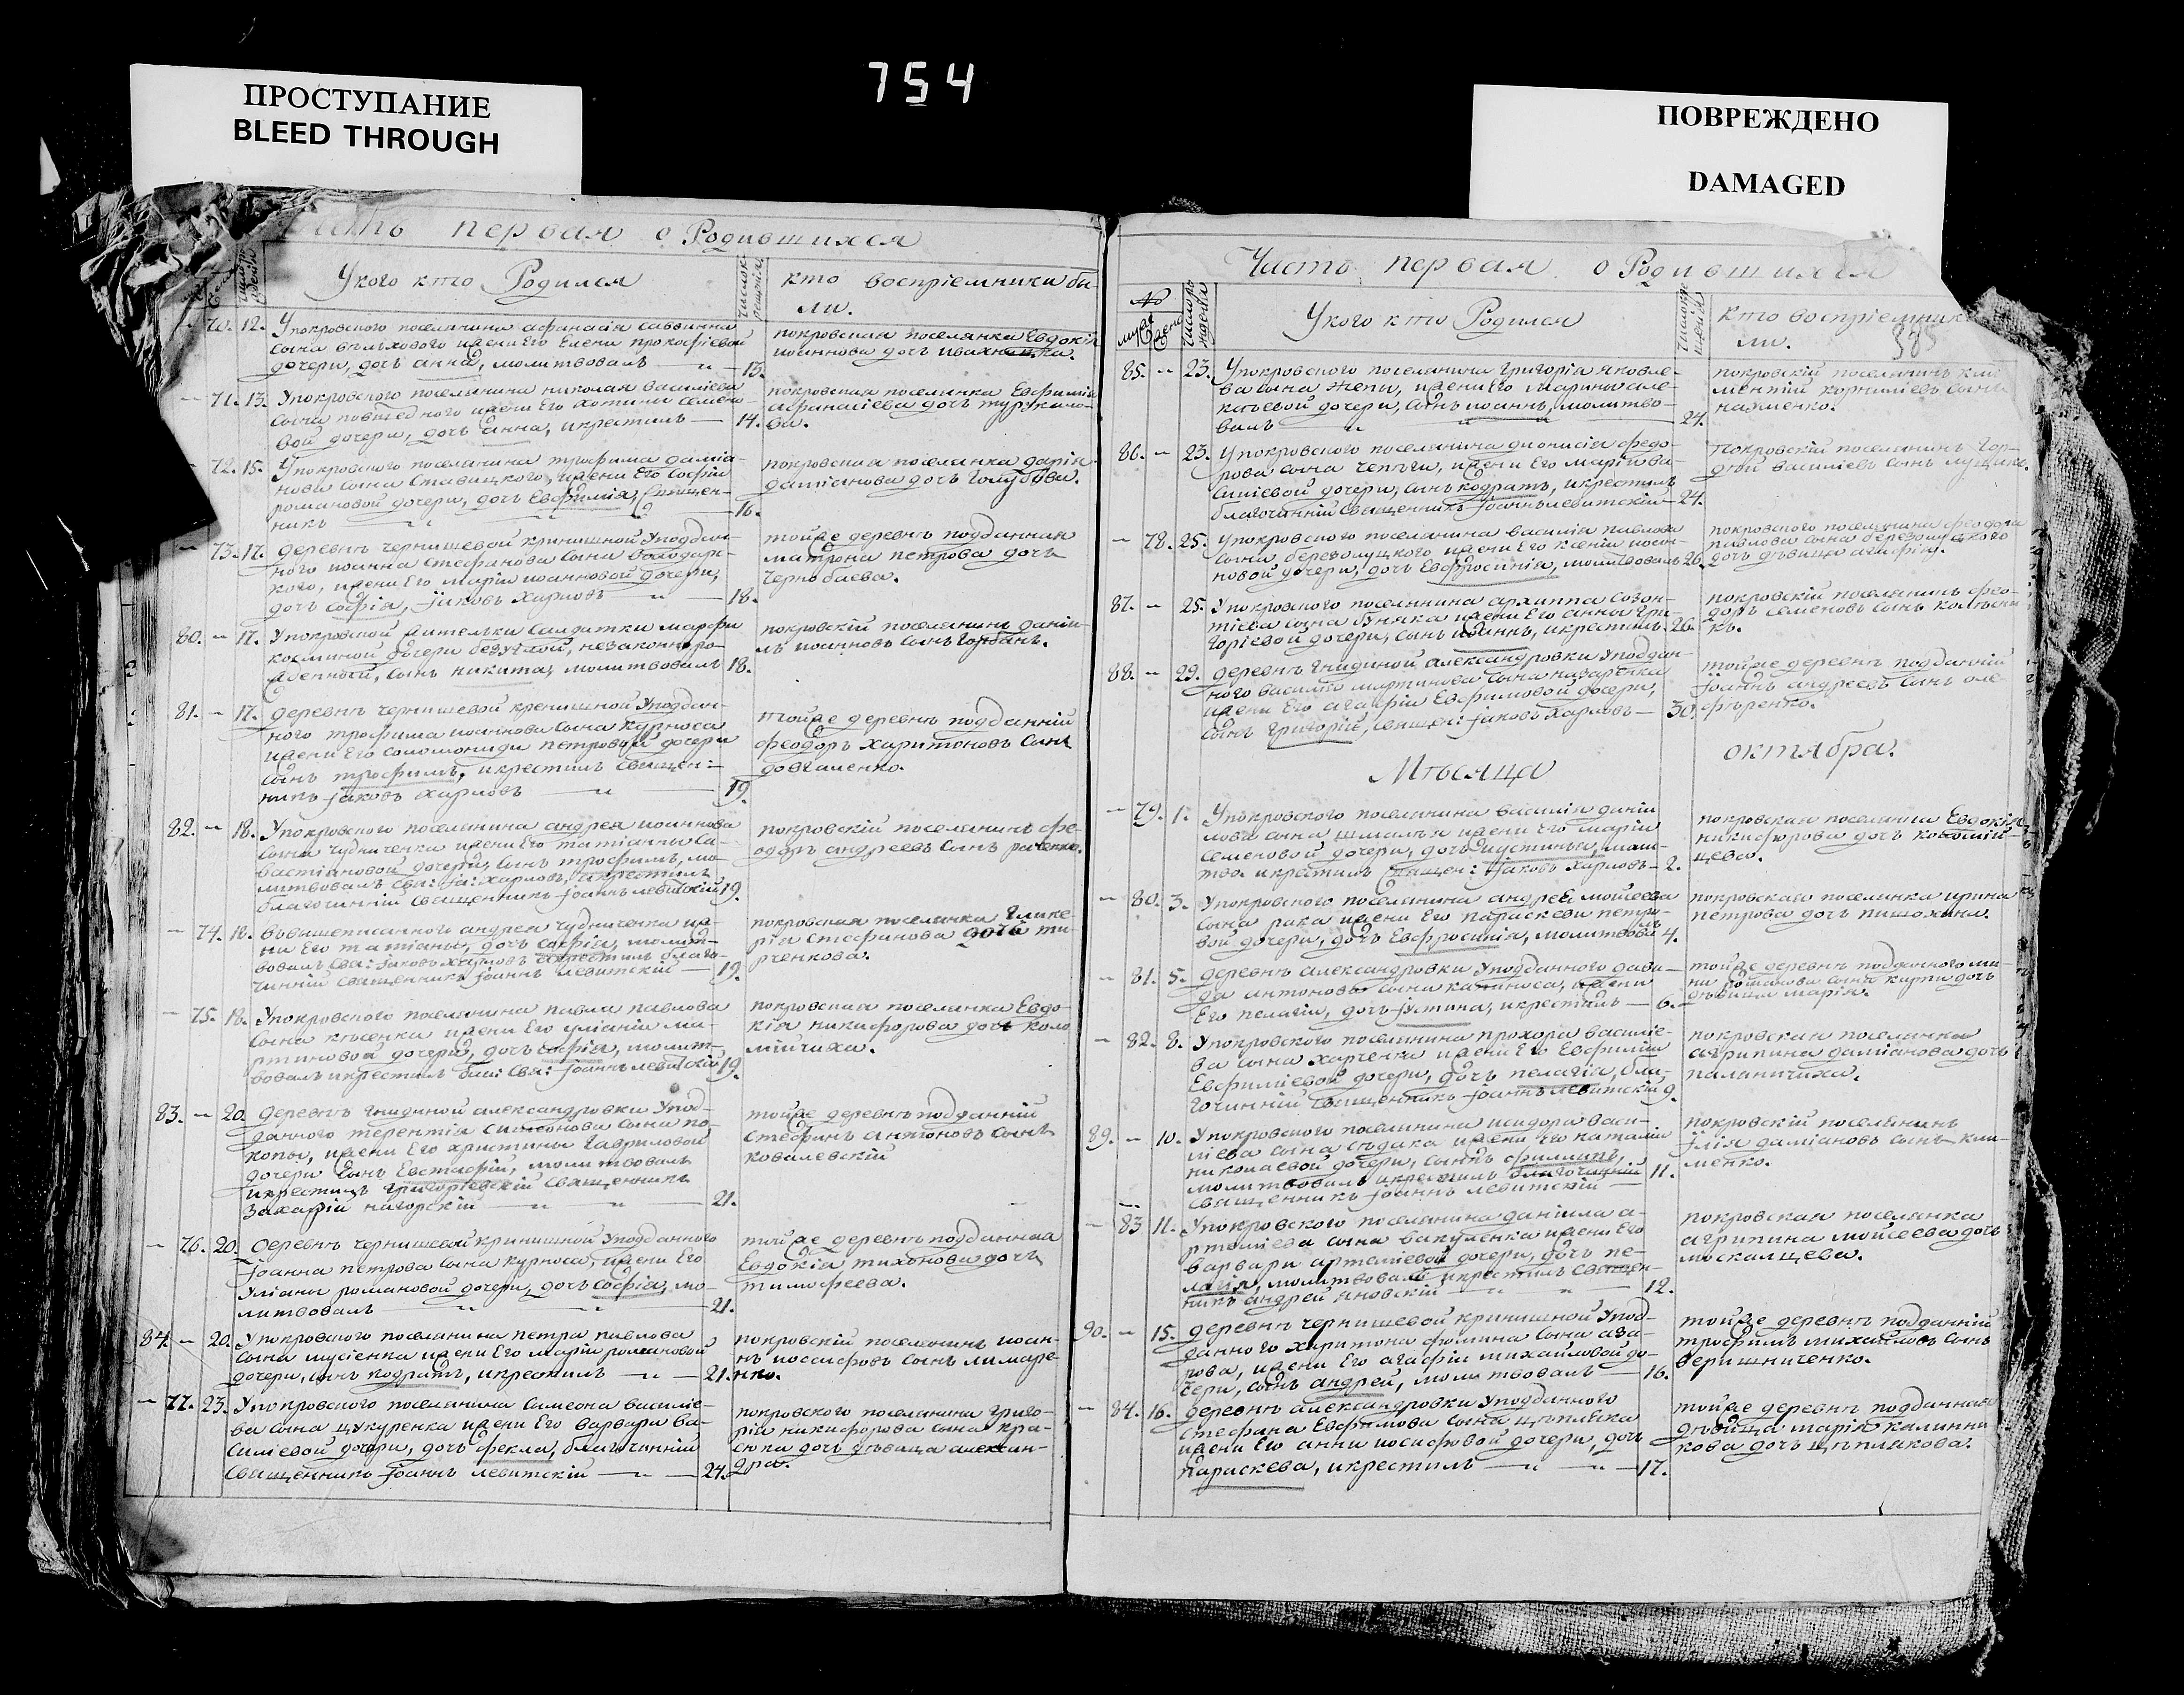 754
ПРОСТУПАНИЕ
BLEED THROUGH
ПОВРЕЖДЕНО
DAMAGED
первая о Родившихся
У кого кто Родился
кто воспріемники бы-
ли.
70. 12. У покровского поселянина афанасія саввина
сына жены Его Елены прокофіевой
дочери, дочь анна, молитвовалъ — 13.
покровская поселянка Евдокія
иоаннова дочь
71. 13. У покровского поселянина николая василіева
сына жены Его семено-
вой дочери, дочь анна, и крестилъ — 14.
покровская поселянка Евфимія
афанасіева дочь
ва.
72. 15. У покровского поселянина трофима даміа-
нова сына Ставицкого, жены Его Софіи
романовой дочери, дочь Евфимія, Священ-
никъ — 16.
покровская поселянка дарія
даміанова дочь голубова.
73. 17. деревнѣ чернишевой криничной У поддан-
ного иоанна стефанова сына
кого, жены Его маріи иоанновой дочери,
дочь софія, іаковъ Харловъ — 18.
тойже деревнѣ подданная
матрона петрова дочь
чернобаева.
80. — 17. У покровской жительки салдатки марфы
косминой дочери незаконноро-
жденный, сынъ никита, молитвовалъ 18.
покровскій поселянинъ даніи-
лъ иоанновъ сынъ горбань.
81. — 17. деревнѣ чернишевой креничной У поддан-
ного трофима иоаннова сына Курноса
жены Его соломониди петровой дочери
сынъ трофимъ, и крестилъ священ-
никъ іаковъ харловъ — 19.
тойже деревнѣ подданній
феодоръ харитоновъ сынъ
довгаленко.
82. — 18. У покровского поселянина андрея иоаннова
сына чудниченка жены Его татіаны са-
вастіановой дочери, сынъ трофимъ, мо-
литвовалъ свя: іа: харловъ, и крестилъ
благочинній священникъ іоаннъ левитскій 19.
покровскій поселянинъ фе-
одоръ андреевъ сынъ
74. 18. вовышеписанного андрея чудниченка же-
ни Его татіаны, дочь софія, молит-
вовалъ свя: іаковъ харловъ и крестилъ благо-
чинній священникъ іоаннъ левитскій — 19.
покровская поселянка глике-
рія стефанова дочь ти-
рченкова.
75. 18. У покровского поселянина павла павлова
сына жены Его уліаніи ма-
ртиновой дочери, дочь софія, молит-
вовалъ и крестилъ бла: свя: іоаннъ левитскій 19.
покровская поселянка Евдо-
кія никифорова дочь коло
мійчиха.
83. — 20. деревнѣ гнидиной александровки У под-
данного терентія симеонова сына по-
копы, жены Его христины гавриловой
дочери сынъ Евстафій, молитвовалъ
и крестилъ григоріевскій священникъ
Захарій нагорскій — 21.
тойже деревнѣ подданній
стефанъ антоновъ сынъ
ковалевскій
76. 20. деревнѣ чернишевой криничной У подданного
іоанна петрова сына курноса, жены Его
Уліаны романовой дочери, дочь софія, мо-
литвовалъ — 21.
тойже деревнѣ подданная
Евдокія тихонова дочь
тимофеева.
84. — 20. У покровского поселянина петра павлова
сына мусіенка жены Его маріи романовой
дочери, сынъ кодратъ, и крестилъ — 21.
покровскій поселянинъ иоан-
нъ иосифовъ сынъ лимаре
нко.
77. 23. У покровского поселянина симеона василіе-
ва сына цукуренка жены Его варвары ва-
силіевой дочери, дочь фекла, благочинній
священникъ іоаннъ левитскій — 24.
покровского поселянина григо-
рія никифорова сына кра-
сюка дочь дѣвица алексан-
дра.
Часть первая о Родившихся
У кого кто Родился
кто воспріемник
ли.
385
85. — 23. У покровского поселянина григорія яковле-
ва сына жены Его марины але-
ксѣевой дочери, сынъ иоаннъ, молитво-
валъ 24.
покровскій поселянинъ кли
ментій корниліевъ сынъ
науменко.
86. — 23. У покровского поселянина дионисія федо-
рова сына чепѣги, жены Его маріи ва-
силіевой дочери, сынъ кодратъ, и крестилъ
благочинній священникъ іоаннъ левитскій — 24.
покровскій поселянинъ гор-
дѣй василіевъ сынъ
78. 25. У покровского поселянина василія павлова
сына березолуцкого жены Его ксеніи иоан-
новой дочери, дочь Евфросинія, молитвовалъ 26.
покровского поселянина феодора
павлова сына березолуцкого
дочь дѣвица агафія.
87. — 25. У покровского поселянина архиппа созон-
тіева сына жены Его анны гри-
горіевой дочери, сынъ иоаннъ, и крестилъ 26.
покровскій поселянинъ фео-
доръ семеновъ сынъ
къ.
88. — 29. деревнѣ гнидиной александровки У поддан-
ного василія мартинова сына назаренка
жены Его агафіи Евфимовой дочери,
сынъ григорій, священ: іаковъ харловъ — 30.
тойже деревнѣ подданній
іоаннъ андреевъ сынъ оле
фѣренко.
Мѣсяца октября.
79. 1. У покровского поселянина василія даніи
лова сына шмалѣя жены Его маріи
семеновой дочери, дочь иустинія, моли-
тво. и крестилъ священ: іаковъ харловъ — 2.
покровская поселянка Евдокія
никифорова дочь коломій-
цева.
80. 3. У покровского поселянина андрея мойсеева
сына рака жены Его параскеви петро-
вой дочери, дочь Евфросинія, молитвовалъ 4.
покровская поселянка ирина
петрова дочь
81. 5. деревнѣ александровки У подданного дави-
да антонова сына жены
Его пелагіи, дочь іустина, и крестилъ — 6.
тойже деревнѣ подданного
дочь
дѣвица марія.
82. 8. У покровского поселянина прохора василіе-
ва сына харченка жены Его Евфиміи
Евфиміевой дочери, дочь пелагія, бла-
гочинній священникъ іоаннъ левитскій 9.
покровская поселянка
агрипина даміанова дочь
паланичиха.
89. — 10. У покровского поселянина исидора васи-
ліева сына сѣдака жены Его наталіи
николаевой дочери, сынъ филипъ,
молитвовалъ и крестилъ благочинній
священникъ іоаннъ левитскій — 11.
покровскій поселянинъ
ілія даміановъ сынъ кли-
менко.
83 11. У покровского поселянина даніила а-
ртеміева сына вакуленка жены Его
варвары артеміевой дочери, дочь пе-
лагія, молитвовалъ и крестилъ священ-
никъ андрей яновскій — 12.
покровская поселянка
агрипина мойсеева дочь
москалцева.
90. — 15. деревнѣ чернишевой криничной У под-
данного харитона фомина сына аза-
рова, жены Его агафіи михайловой до-
чери, сынъ андрей, молитвовалъ — 16.
тойже деревнѣ подданній
трофимъ михайловъ сынъ
веришниченко.
84. 16. деревнѣ александровки У подданного
стефана Евфимова сына цѣпляка
жены Его анны иосифовой дочери, дочь
параскева, и крестилъ — 17.
тойже деревнѣ подданная
дѣвица марія калинни
кова дочь цѣплякова.